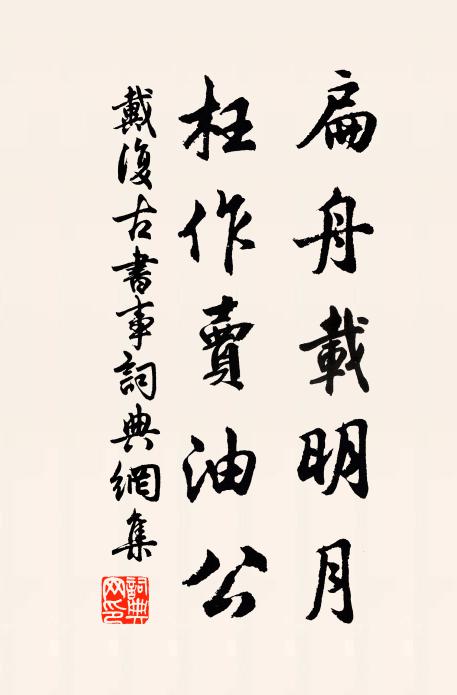 扁舟載明月
枉作賣油公
戴復古書事詞典網集
詞典網印